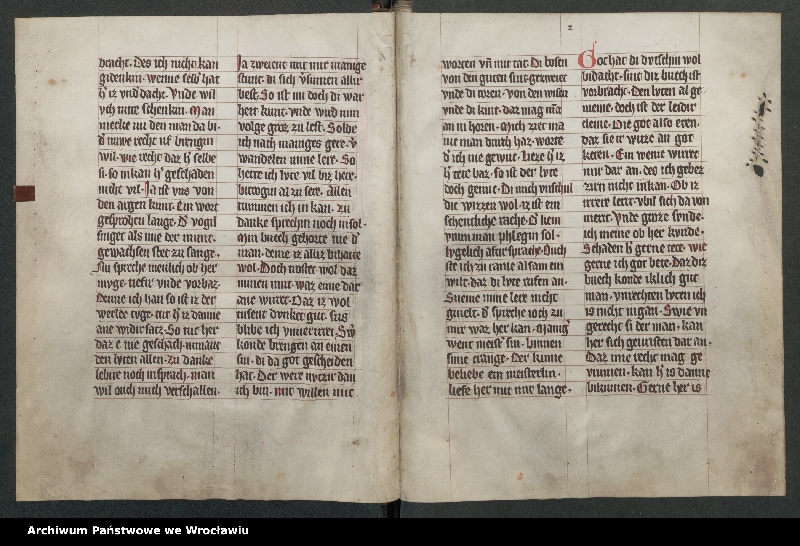 dracht. Des ich nicht kan
gidenkin. wenne selb hat
h' iz vnd dacht. Vnde wil
vch nuwe schenkin. Man
mercke nu den man da bi.
d' nuwe recht uf brengin
wil. wie recht daz h' selbe
si. so mkan h' geschaden
nicht vil. Ja ist vns von
den augen kunt. Ein wort
gesprochin lange. D' vogil
singet als
gewachsen stet zu sange.
Nu spreche menlich ob her
muge. tiefir vnde vorbaz.
Denne ich han so ist iz der
werlde tuge. tut h' iz danne
ane widirsatz. So tut her
daz e nie geschach. nimant
den luten allen. zu danke
lebite noch insprach. man
wil ouch mich verschallen.
Ja zweient mit mir manige
stunt. di sich v'sinnen allir
best. So ist mi doch di war
heit kunt. vnde wird min
volge groz zu lest. Solde
ich nach maniges gere. v'
wandelen mine lere. So
hette ich lute vil biz here.
bitrogin al zu sere. Allen
tummen ich in kan. zu
danke sprechin noch insol.
Min buch gehorte nie d'
man. deme iz allir bihaite
wol. Doch mostet wol daz
minen mut. waz eime dar
ane wirret. Daz iz wol
tusent dunket gut. sus
blibe ich vnuerirret. Sw'
konde brengen an einen
sin. di da got gescheiden
hat. Der were nutzir dan
ich bin. mit willen mit
2
worten vn mit tat. Di bosen
von den guten sint gezweiet
vnde di toren. von den wisen
vnde di kint. daz mag man
an in horen. Mich ziet ma
nie man durch haz. worte
d' ich nie gewuc. Lieze h' iz
h' tete baz. so ist der lute
doch genuc. Di mich vnschul
dic wizzen wol. iz ist ein
schentliche rache. D' kein
vrum man phlegin sol.
lugelich aftirsprache. Ouch
ste ich zu rame alsam ein
wilt. daz di lute rufen an.
Sweme mine lere nicht
gevelt. d' spreche ioch zu
mir waz her kan. Manig'
went meist' sin. binnen
sime crange. Der kume
beliebe ein meisterlin.
liefe her mit mir lange.
Got hat di dutschin wol
bidacht. sint diz buch ist
vorbracht. Den luten al ge
meine. doch ist der leidir
cleine. Die got also eren.
daz sie ir witze an got
keren. Ein wenic wirret
mir dar an. des ich geber
zurn nicht inkan. Ob iz
ieten letzt. vbil sich da von
mert. Vnde groze sunde.
ich meine ob her kunde.
Schaden h' gerne tete. wie
gerne ich got bete. Daz diz
buch konde iklich gut
man. vnrechten luten ich
is nicht irgan. Swie vn
gerecht si der man. kan
her sich geuristen dar an.
Daz ime recht mag ge
vrumen. kan h' is danne
bikumen. Gerne her is
Archiwum Państwowe we Wrocławiu